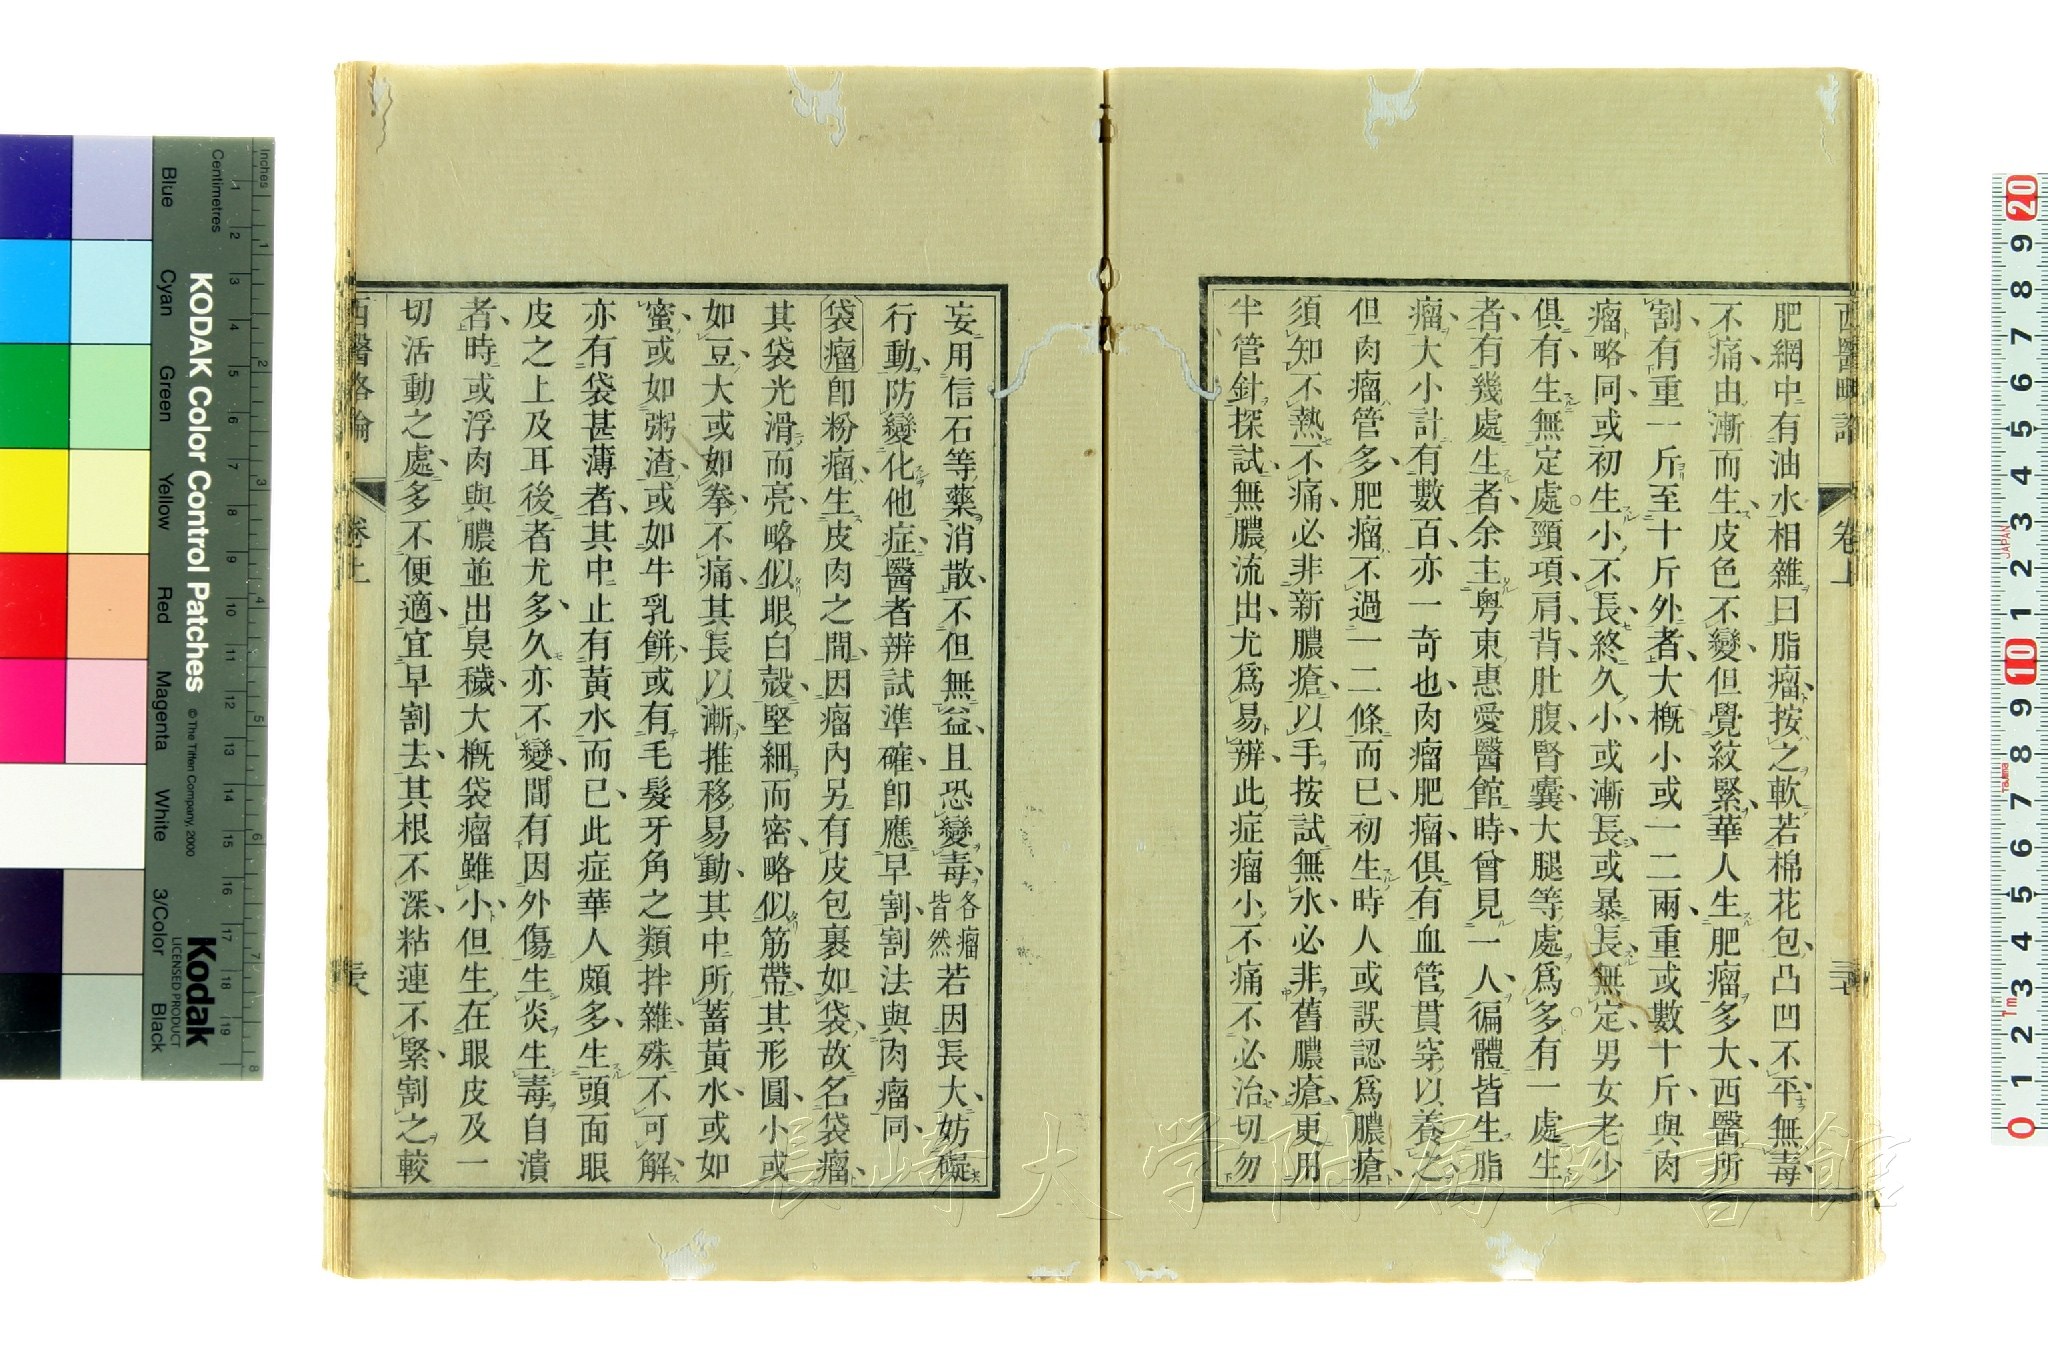 西醫略論 卷上
肥網中有油水相雜曰脂瘤按之軟若棉花包凸凹不平無毒
不痛由漸而生皮色不變但覺絞緊華人生肥瘤多大西醫所
割有重一斤至十斤外者大概小或一二兩重或數十斤與肉
瘤略同或初生小不長終久小或漸長或暴長無定男女老少
俱有生無定處頸項肩背肚腹腎囊大腿等處爲多有一處生
者有幾處生者余主粵東惠愛醫館時曾見一人徧體皆生脂
瘤大小計有數百亦一奇也肉瘤肥瘤俱有血管貫穿以養之
但肉瘤管多肥瘤不過一二條而已初生時人或誤認爲膿瘡
須知不熱不痛必非新膿瘡以手按試無水必非舊膿瘡更用
半管針探試無膿流出尤爲易辨此症瘤小不痛不必治切勿
妄用信石等藥消散不但無益且恐變毒各瘤皆然若因長大妨礙
行動防變化他症醫者辨試準確卽應早割割法與肉瘤同
袋瘤卽粉瘤生皮肉之間因瘤內另有皮包裹如袋故名袋瘤
其袋光滑而亮略似眼白殼堅細而密略似筋帶其形圓小或
如豆大或如拳不痛其長以漸推移易動其中所蓄黃水或如
蜜或如粥渣或如牛乳餅或有毛髮牙角之類拌雜殊不可解
亦有袋甚薄者其中止有黃水而已此症華人頗多生頭面眼
皮之上及耳後者尤多久亦不變間有因外傷生炎生毒自潰
者時或浮肉與膿並出臭穢大概袋瘤雖小但生在眼皮及一
切活動之處多不便適宜早割去其根不深粘連不緊割之較
西醫略論 卷上
長崎大学附属図書館
KODAK Color Control Patches
© The Tiffen Company, 2000
Kodak
LICENSED PRODUCT
Inches
Centimetres
Blue
Cyan
Green
Yellow
Red
Magenta
White
3/Color
Black
JAPAN